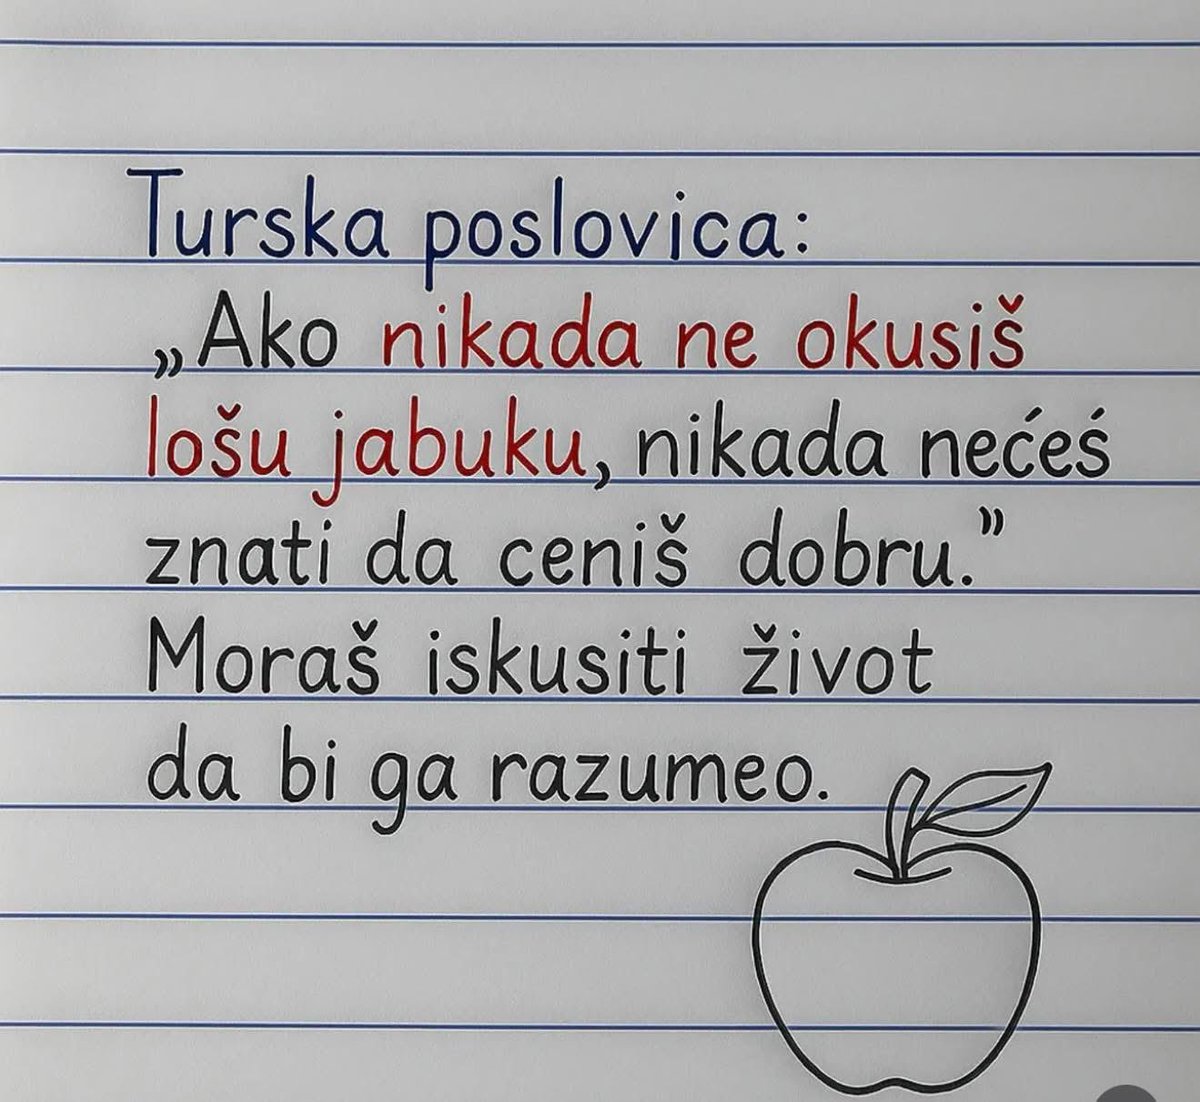 Turska poslovica:
„Ako nikada ne okusiš
lošu jabuku, nikada nećeś
znati da ceniš dobru.”
Moraš iskusiti život
da bi ga razumeo.